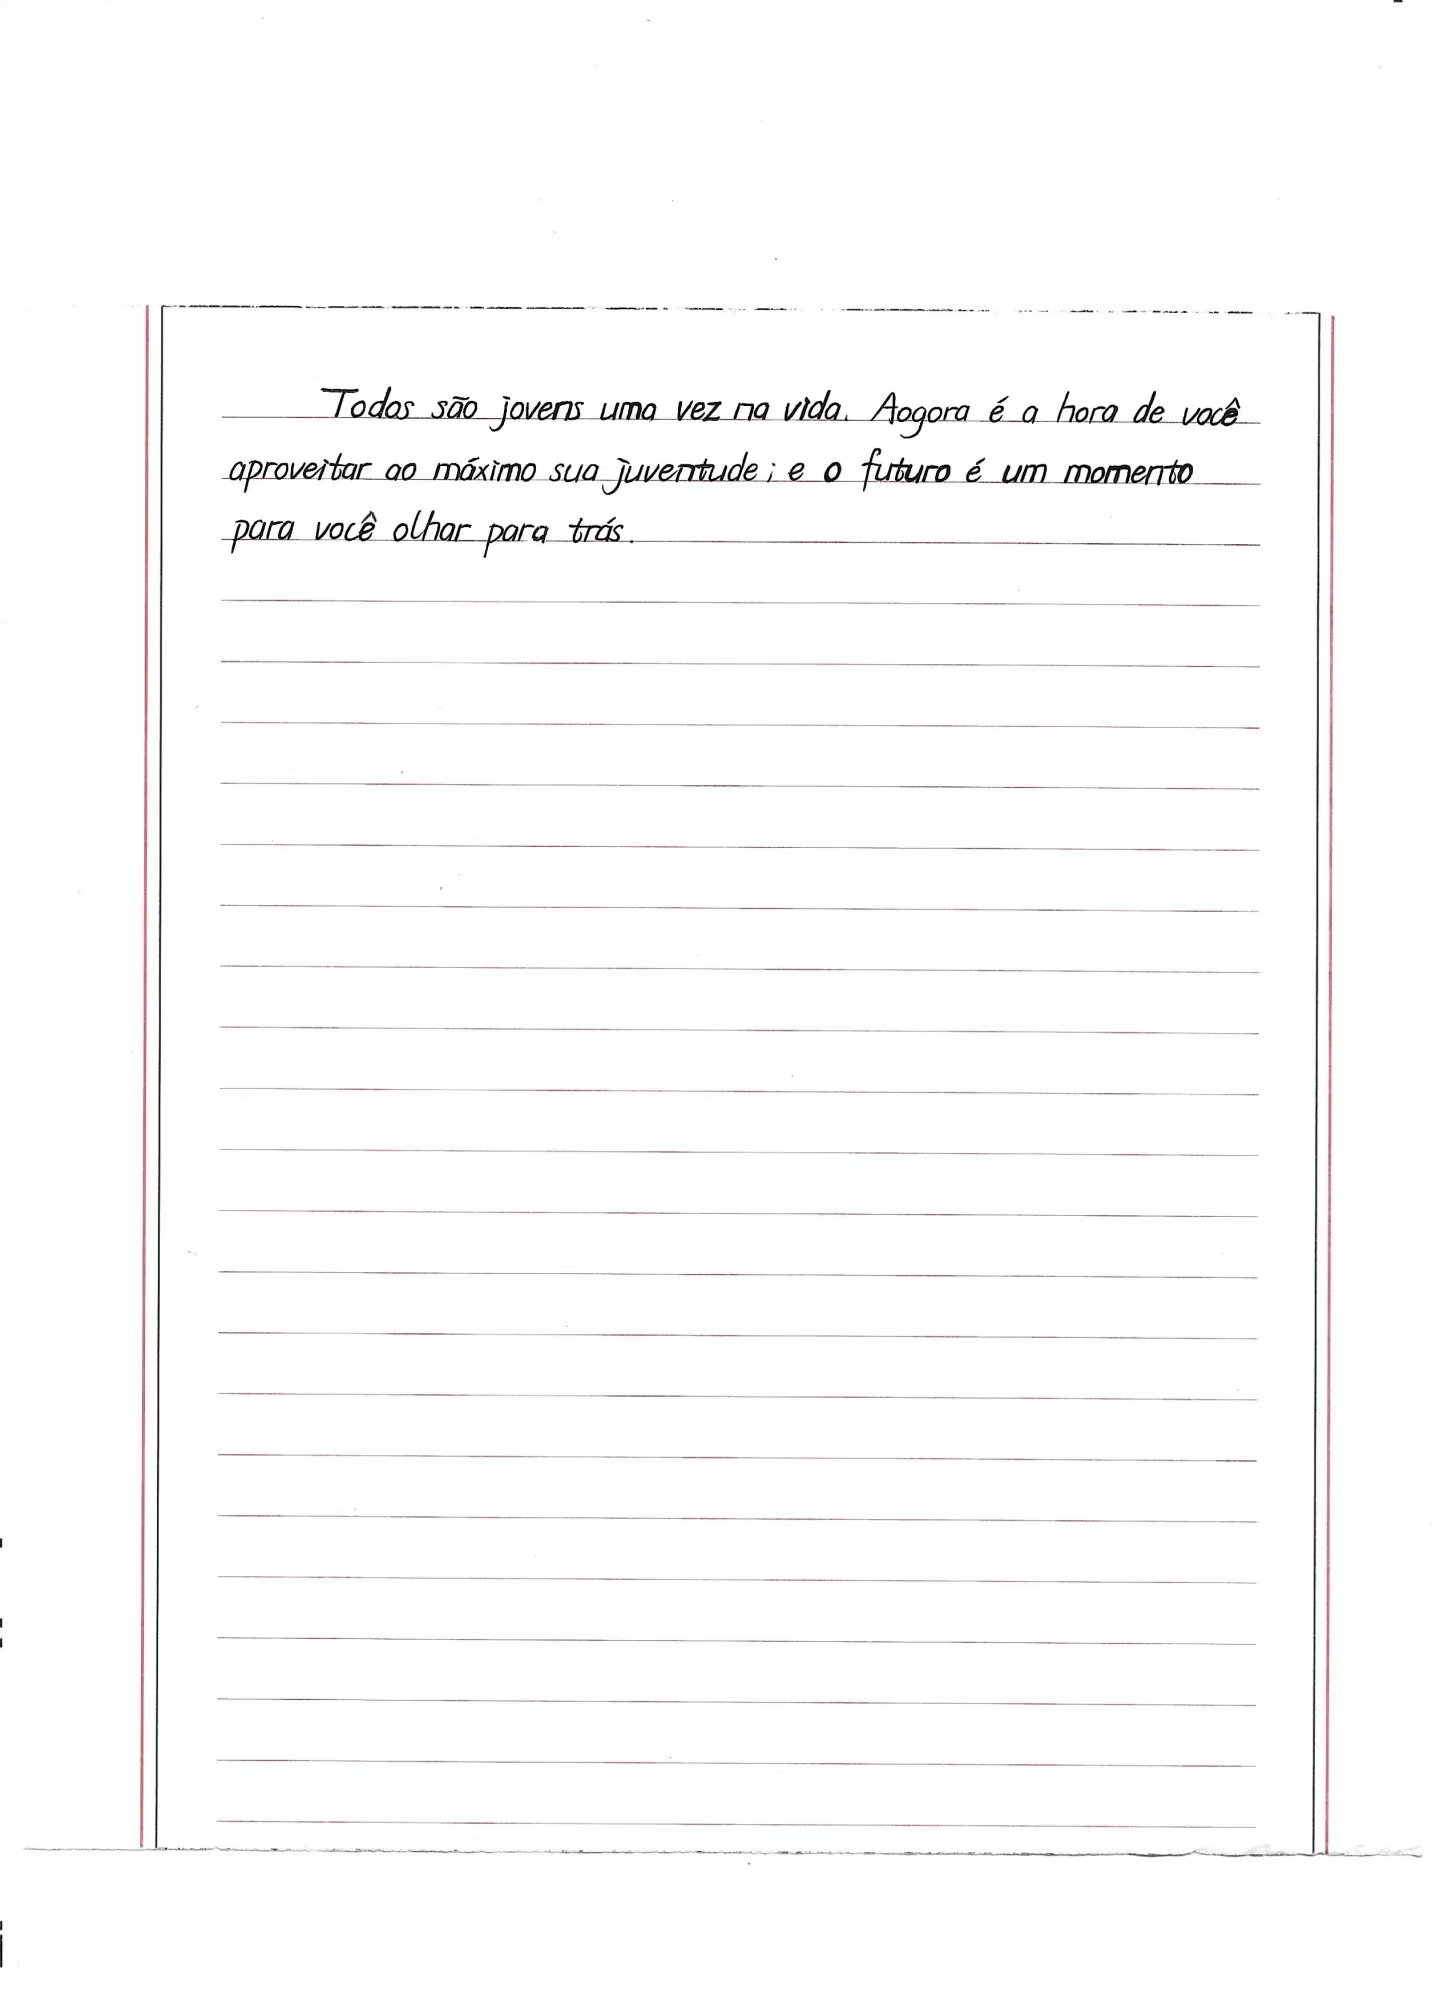 Todos são jovens uma vez na vida. Aogora é a hora de você
aproveitar ao máximo sua juventude; e o futuro é um momento
para você olhar para trás.